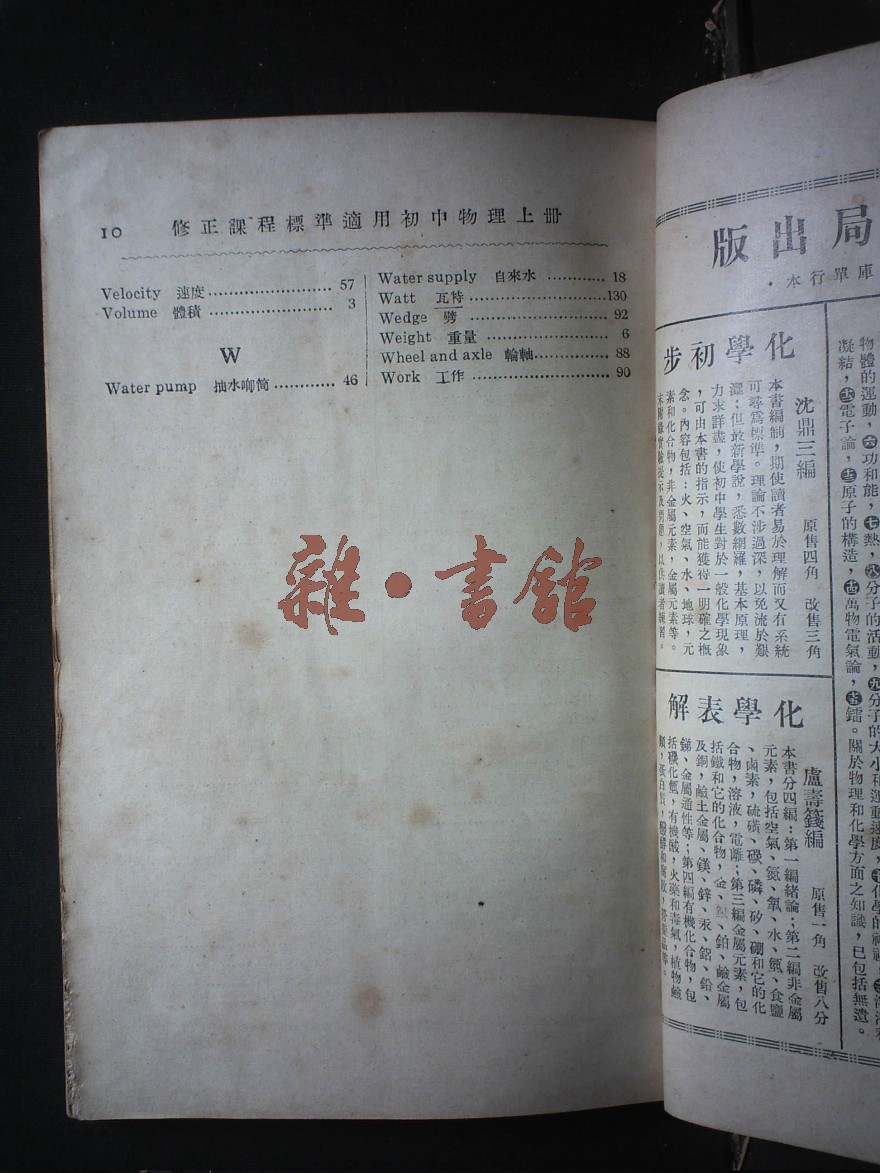 10 修正課程標準適用初中物理上冊
Velocity 速度 57
Volume 體積 3
W
Water pump 抽水喞筒 46
Water supply 自來水 18
Watt 瓦特 130
Wedge 劈 92
Weight 重量 6
Wheel and axle 輪軸 88
Work 工作 90
雜·書館
局出版
庫單行本·
物體的運動，六功和能，七熱，八分子的活動，九分子的大小和運動速度，
凝結，電子論，原子的構造，萬物電氣論，鐳。關於物理和化學方面之知識，已包括無遺。
化學初步
沈鼎三編 原售四角 改售三角
本書編制，期使讀者易於理解而又有系統
可尋爲標準。理論不涉過深，以免流於艱
澀；但最新學說，悉數網羅，基本原理，
力求詳盡，使初中學生對於一般化學現象
，可由本書的指示，而能獲得一明確之概
念。內容包括：火、空氣、水、地球，元
素和化合物，非金屬元素，金屬元素等。
末附錄實驗提示及問題，以供讀者練習。
化學表解
盧壽籛編 原售一角 改售八分
本書分四編：第一編緒論；第二編非金屬
元素，包括空氣、氮、氧、水、氫、食鹽
、鹵素，硫磺、碳、磷、矽、硼和它的化
合物，溶液，電離；第三編金屬元素，包
括鐵和它的化合物，金、銀、鉑、鹼金屬
及銅，鹼土金屬、鎂、鋅、汞、鋁、鉛、
錫、金屬通性等；第四編有機化合物，包
括碳化氫，有機酸，火藥和毒氣，植物鹼
類，蛋白質，醱酵和腐敗，營養品等。